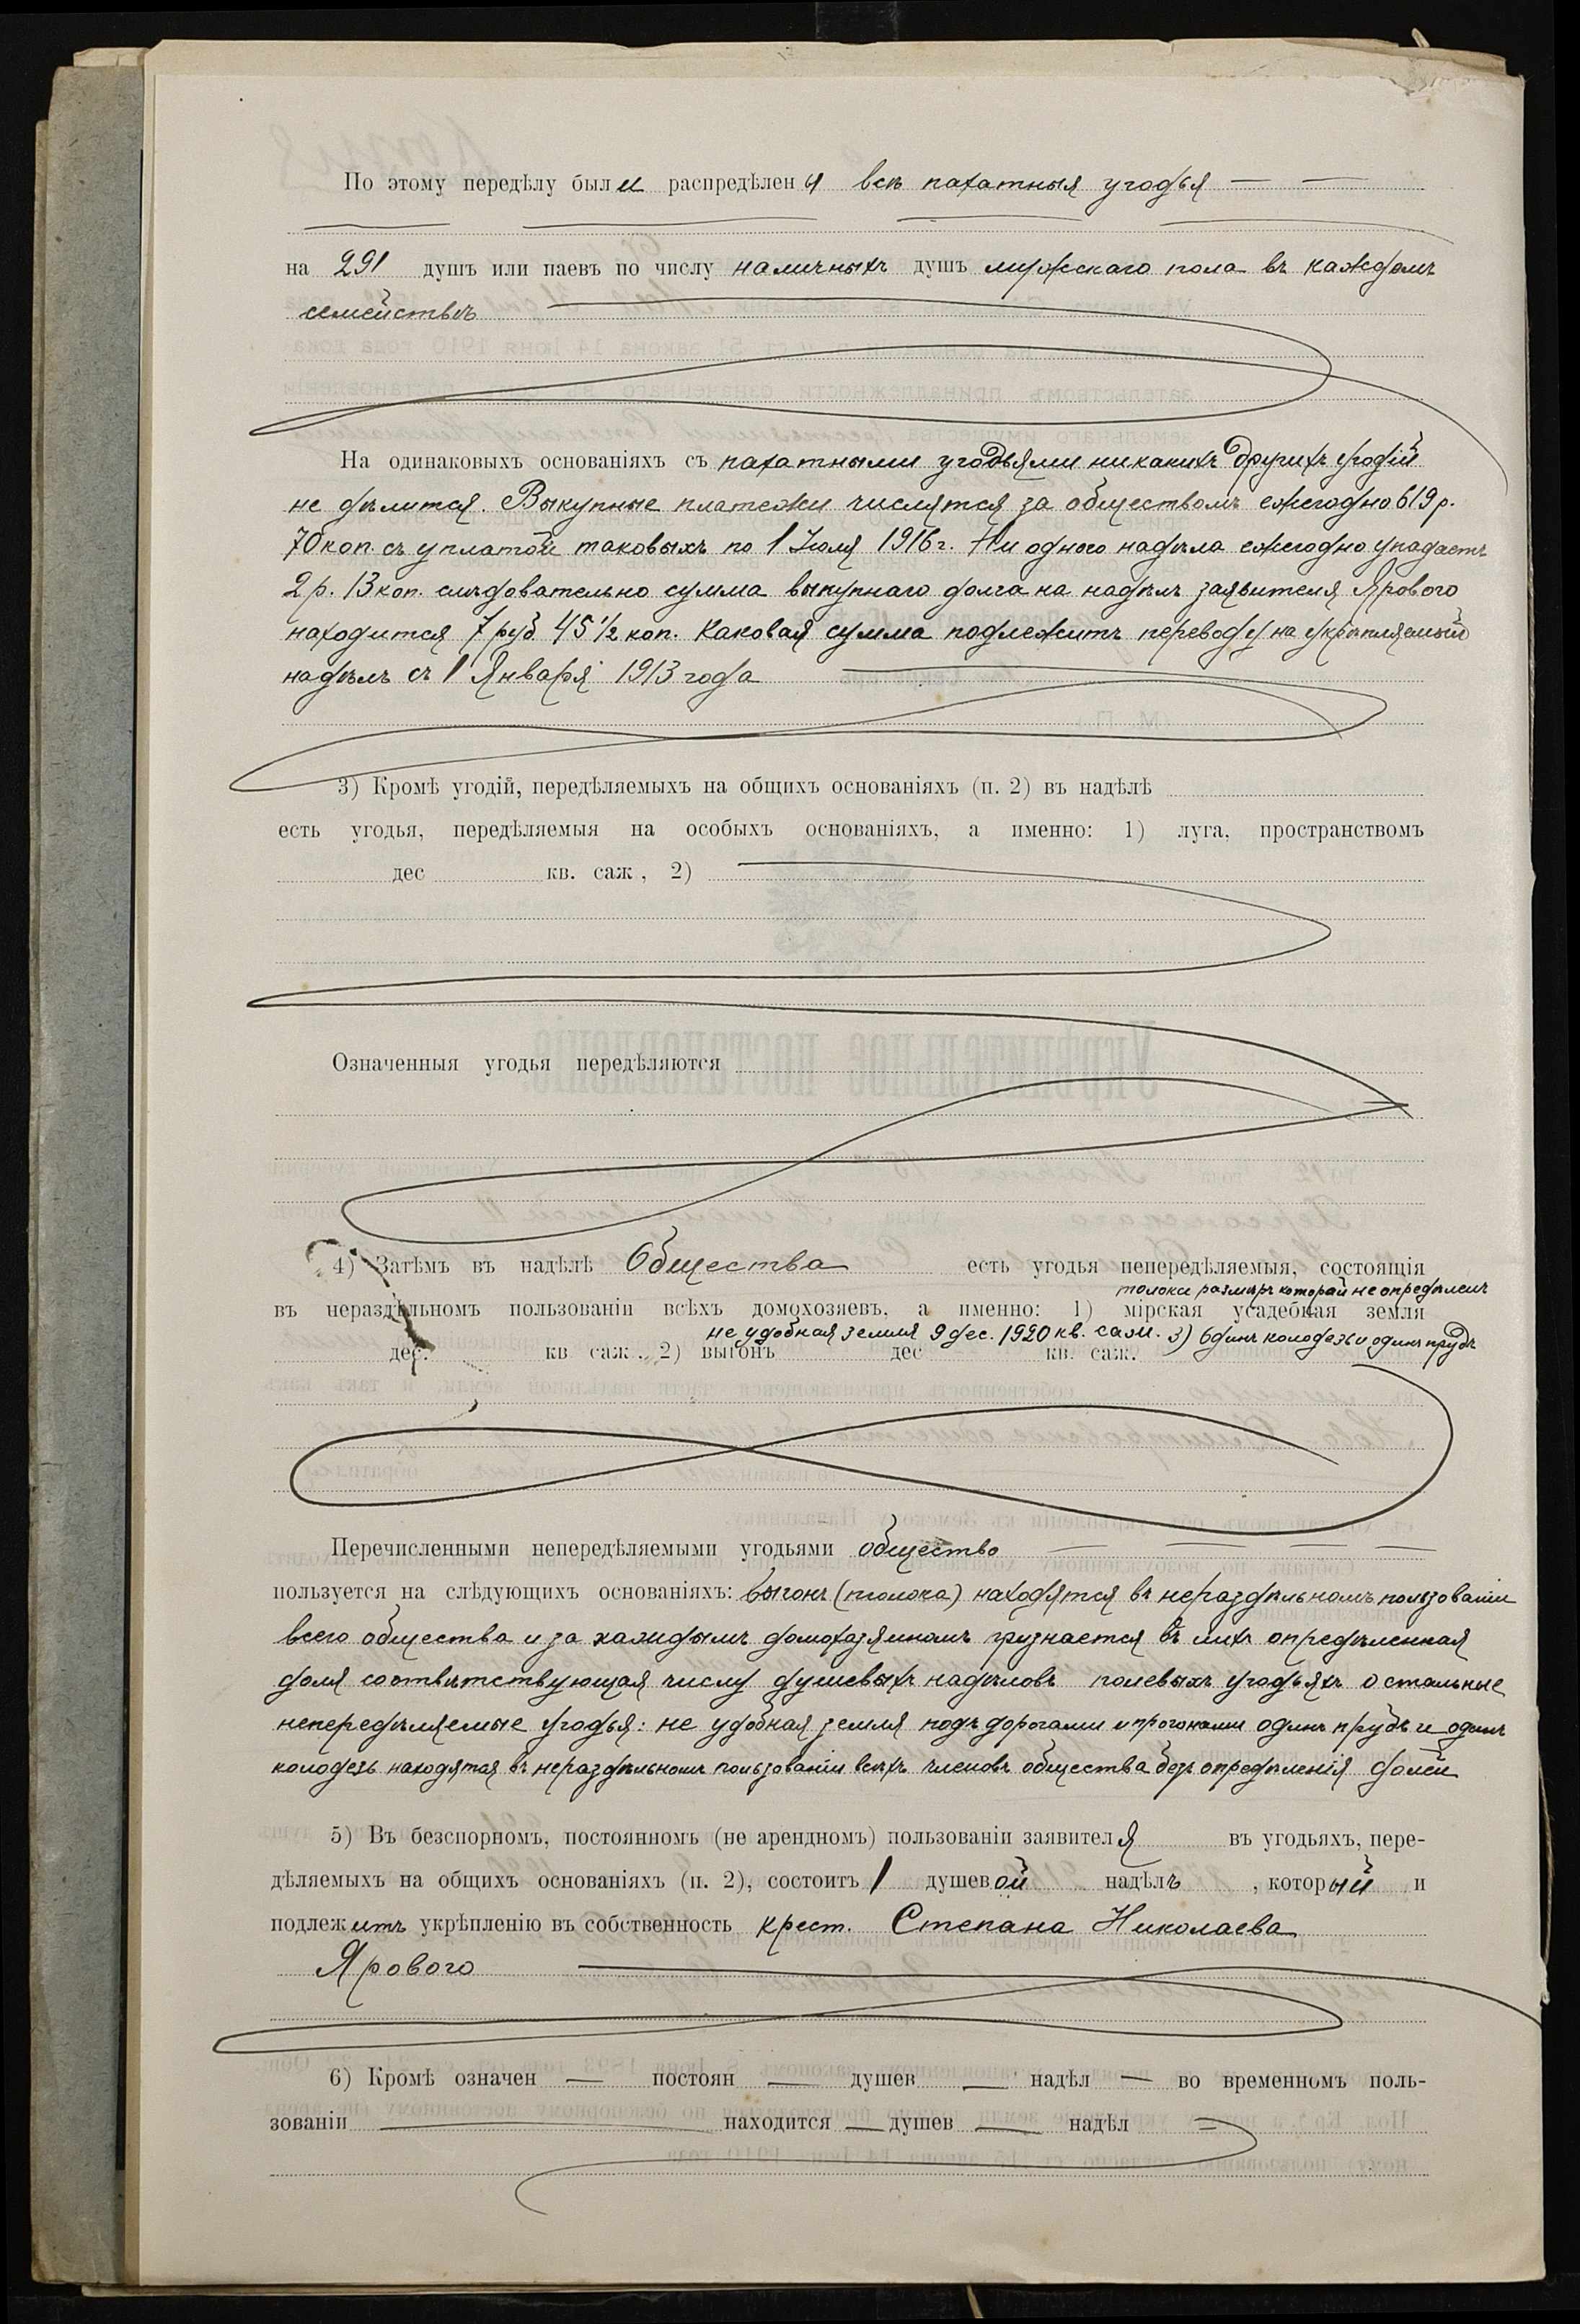 По этому передѣлу были распредѣлены всѣ пахатныя угодья
на 291 душъ или паевъ по числу наличныхъ душъ мужскаго пола въ каждомъ
семействѣ
На одинаковыхъ основаніяхъ съ пахатными угодьями никакихъ другихъ угодій
не дѣлится. Выкупные платежи числятся за обществомъ ежегодно 619 р.
70 коп. съ уплатой таковыхъ по 1 Іюля 1916 г. На одного надѣла ежегодно упадаетъ
2 р. 13 коп. слѣдовательно сумма выкупнаго долга на надѣлъ заявителя Ярового
находится 7 руб 45 1/2 коп. каковая сумма подлежитъ переводу на укрѣпляемый
надѣлъ съ 1 Января 1913 года
3) Кромѣ угодій, передѣляемыхъ на общихъ основаніяхъ (п. 2) въ надѣлѣ
есть угодья, передѣляемыя на особыхъ основаніяхъ, а именно: 1) луга, пространствомъ
дес кв. саж, 2)
Означенныя угодья передѣляются
4) Затѣмъ въ надѣлѣ Общества есть угодья непередѣляемыя, состоящія
толоки размѣръ которой не опредѣленъ
въ нераздѣльномъ пользованіи всѣхъ домохозяевъ, а именно: 1) мірская усадебная земля
не удобная земля 9 дес. 1920 кв. саж. 3) Одинъ колодезь и одинъ прудъ
дес. кв саж. 2) выгонъ дес кв. саж.
Перечисленными непередѣляемыми угодьями общество
пользуется на слѣдующихъ основаніяхъ: выгонъ (толока) находятся въ нераздѣльномъ пользованіи
всего общества и за каждымъ домохозяиномъ признается въ нихъ опредѣленная
доля соотвѣтствующая числу душевыхъ надѣловъ полевыхъ угодьяхъ остальные
непередѣляемые угодья: не удобная земля подъ дорогами и прогонами одинъ прудъ и одинъ
колодезь находятся въ нераздѣльномъ пользованіи всѣхъ членовъ общества безъ опредѣленія долей
5) Въ безспорномъ, постоянномъ (не арендномъ) пользованіи заявителя въ угодьяхъ, пере-
дѣляемыхъ на общихъ основаніяхъ (п. 2), состоитъ 1 душевой надѣлъ, который и
подлежитъ укрѣпленію въ собственность крест. Степана Николаева
Ярового
6) Кромѣ означен — постоян — душев — надѣл — во временномъ поль-
зованіи — находится — душев — надѣл —